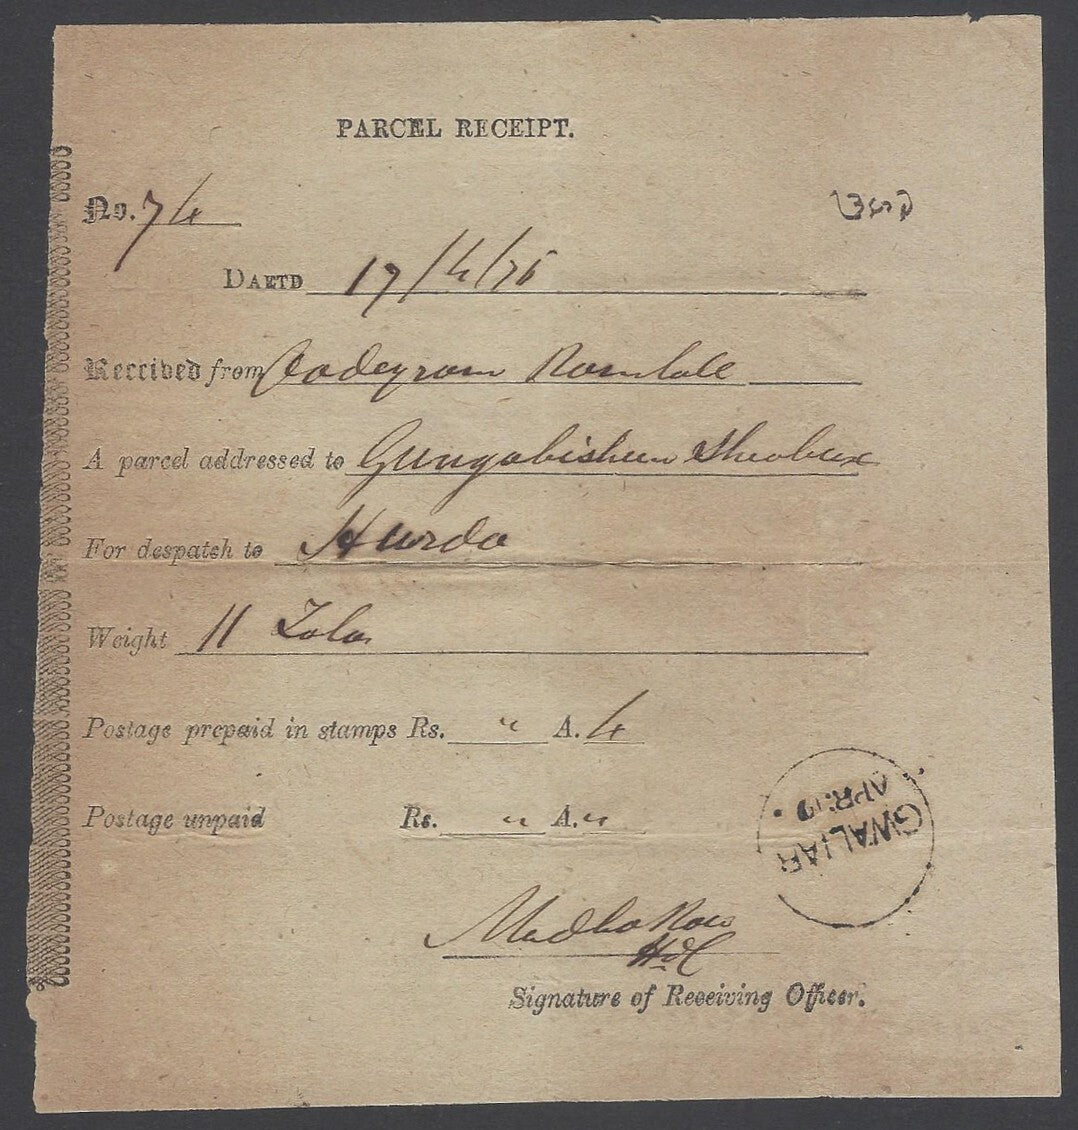 PARCEL RECEIPT.
No. 74
DAETD 17/4/75
Received from Oodeyram Ramlall
A parcel addressed to Gungabishen Sheobux
For despatch to Hurda
Weight 11 Tola
Postage prepaid in stamps Rs. " A. 4
Postage unpaid Rs. " A. "
GWALIAR
APR:17
Madho Row
Signature of Receiving Officer.